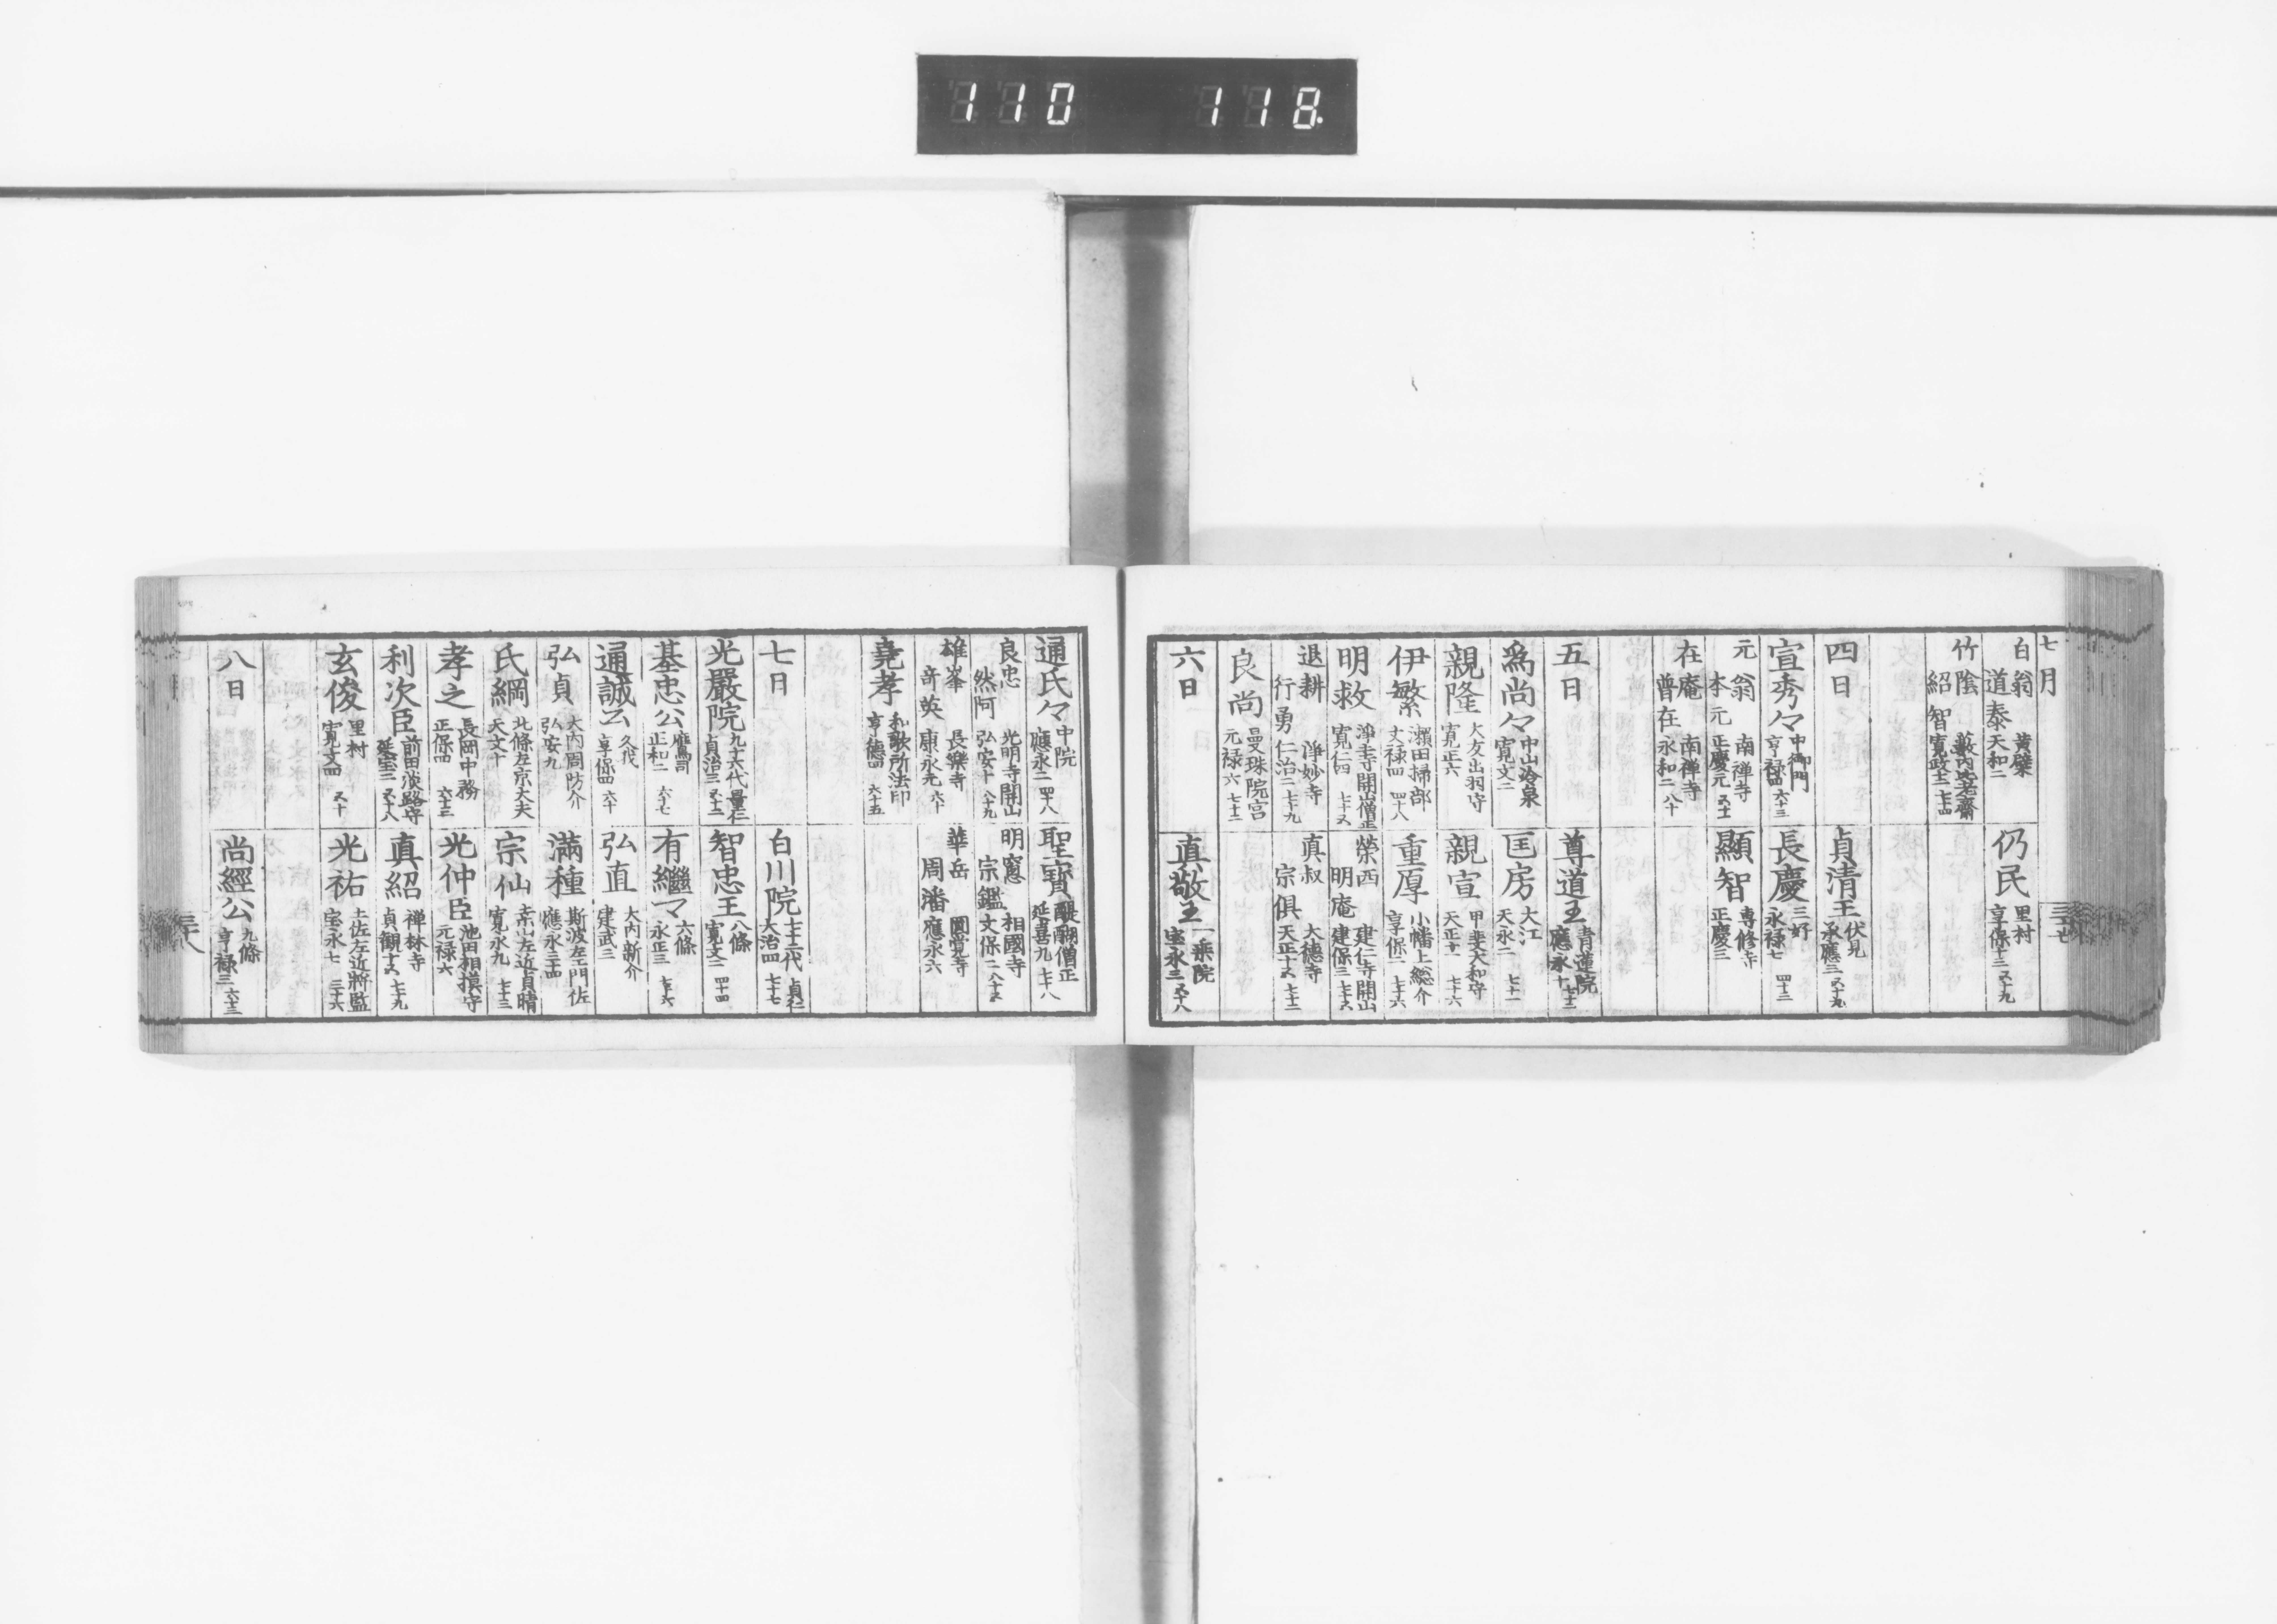 110 118.
七月
白翁 道泰 黄檗 天和二
仍民 里村 享保十三 五十九
竹陰 紹智 寛政十二 七十四
四日
貞清王 伏見 承應三 五十九
宣秀々 中御門 亨禄四 六十三
長慶 三好 永禄七 四十三
元翁 本元 南禅寺 正慶元 五十一
顯智 専修寺 正慶三
在庵 普在 南禅寺 永和二 八十
五日
尊道王 青蓮院 應永十 七十二
為尚々 中山冷泉 寛文二
匡房 大江 天永二 七十一
親隆 大友出羽守 寛正六
親宣 甲斐大和守 天正十一 七十六
伊繁 瀬田掃部 文禄四 四十八
重厚 小幡上総介 享保二 七十六
明救 浄土寺開山僧正 寛仁四 七十五
榮西 明庵 建仁寺開山 建保三 七十五
退耕 行勇 浄妙寺 仁治二 七十九
真叔 宗俱 大徳寺 天正十五 七十二
良尚 曼珠院宮 元禄六 七十二
六日
真敬王 一乗院 宝永三 五十八
通氏々 中院 應永二 四十八
聖寳 醍醐僧正 延喜九 七十八
良忠 然阿 光明寺開山 弘安十 八十九
明窓 宗鑑 相國寺 文保二 八十五
雄峯 奇英 長樂寺 康永元 六十
華岳 周潘 圓覚寺 應永六
堯孝 和歌所法印 亨徳四 六十五
七日
白川院 七十二代 貞仁 大治四 七十七
光嚴院 九十六代 量仁 貞治三 五十二
智忠王 八條 寛文二 四十四
基忠公 鷹司 正和二 六十七
有繼マ 六條 永正三
通誠公 久我 享保四 六十
弘直 大内新介 建武三
弘貞 大内周防介 弘安九
満種 斯波左衛門佐 應永三十四
氏綱 北條左京大夫 天文十
宗仙 寛永九 七十三
孝之 長岡中務 正保四 六十三
光仲臣 池田相摸守 元禄六
利次臣 前田淡路守 延宝二 五十八
真紹 禅林寺 貞観十五 七十九
玄俊 里村 寛文四 五十
光祐 土佐左近將監 宝永七 三十六
八日
尚經公 九條 亨禄三 六十三